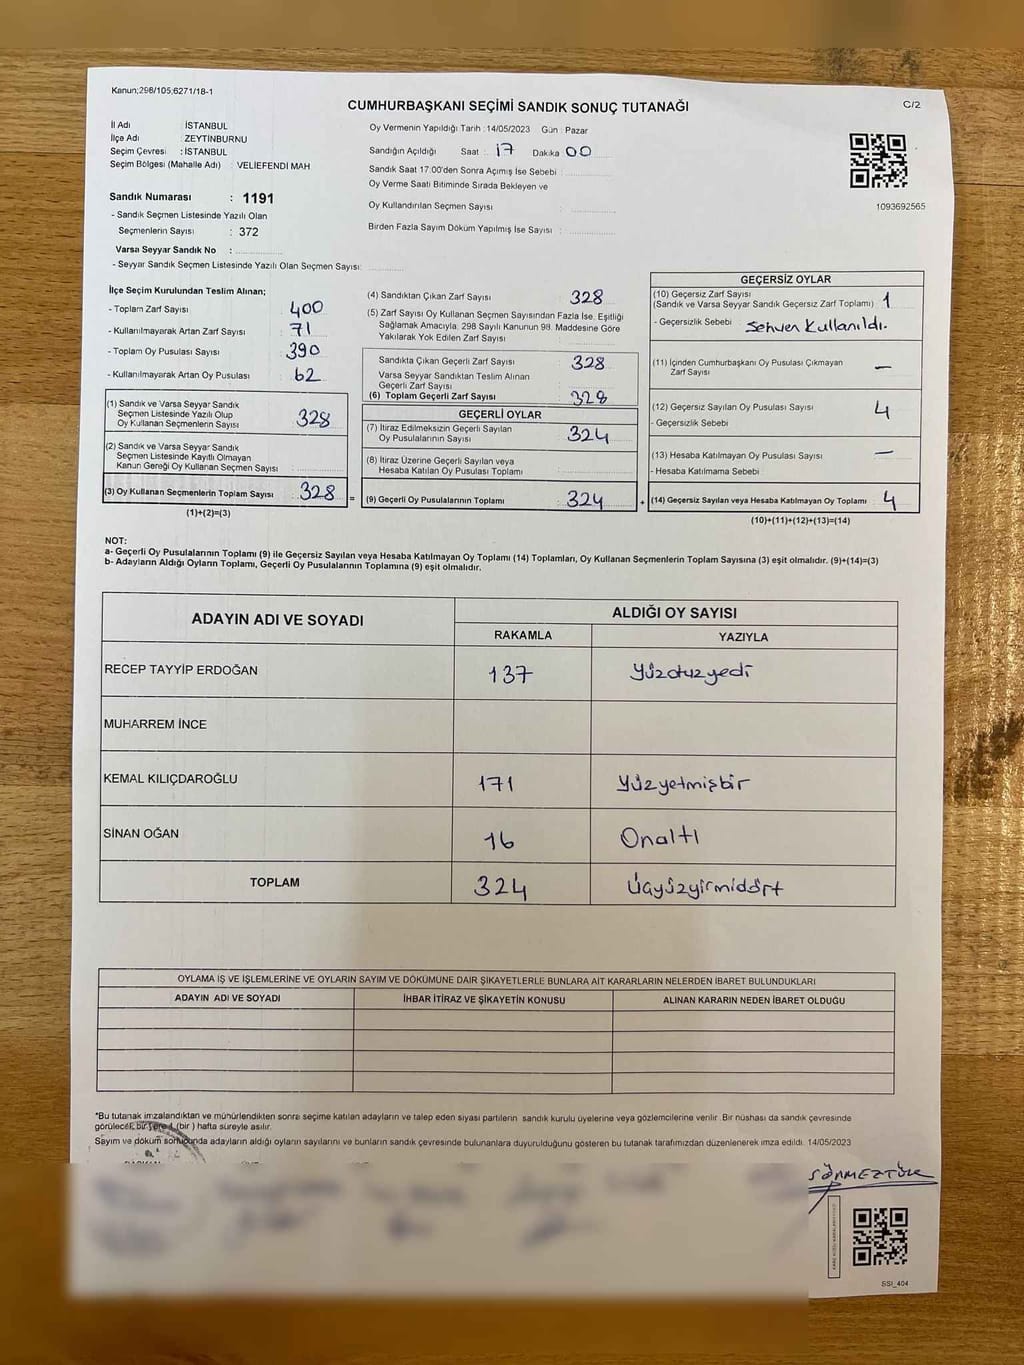 Kanun:298/105,6271/18-1
CUMHURBAŞKANI SEÇİMİ SANDIK SONUÇ TUTANAĞI
C/2
İl Adı : İSTANBUL
İlçe Adı : ZEYTİNBURNU
Seçim Çevresi : İSTANBUL
Seçim Bölgesi (Mahalle Adı) : VELİEFENDİ MAH
Sandık Numarası : 1191
- Sandık Seçmen Listesinde Yazılı Olan
Seçmenlerin Sayısı : 372
Varsa Seyyar Sandık No :
- Seyyar Sandık Seçmen Listesinde Yazılı Olan Seçmen Sayısı:
Oy Vermenin Yapıldığı Tarih : 14/05/2023 Gün : Pazar
Sandığın Açıldığı Saat : 17 Dakika 00
Sandık Saat 17:00'den Sonra Açımış İse Sebebi :
Oy Verme Saati Bitiminde Sırada Bekleyen ve
Oy Kullandırılan Seçmen Sayısı :
Birden Fazla Sayım Döküm Yapılmış İse Sayısı :
1093692565
İlçe Seçim Kurulundan Teslim Alınan;
- Toplam Zarf Sayısı : 400
- Kullanılmayarak Artan Zarf Sayısı : 71
- Toplam Oy Pusulası Sayısı : 390
- Kullanılmayarak Artan Oy Pusulası : 62
(1) Sandık ve Varsa Seyyar Sandık
Seçmen Listesinde Yazılı Olup
Oy Kullanan Seçmenlerin Sayısı : 328
(2) Sandık ve Varsa Seyyar Sandık
Seçmen Listesinde Kayıtlı Olmayan
Kanun Gereği Oy Kullanan Seçmen Sayısı :
(3) Oy Kullanan Seçmenlerin Toplam Sayısı : 328 =
(1)+(2)=(3)
(4) Sandıktan Çıkan Zarf Sayısı : 328
(5) Zarf Sayısı Oy Kullanan Seçmen Sayısından Fazla İse, Eşitliği
Sağlamak Amacıyla; 298 Sayılı Kanunun 98. Maddesine Göre
Yakılarak Yok Edilen Zarf Sayısı :
Sandıkta Çıkan Geçerli Zarf Sayısı : 328
Varsa Seyyar Sandıktan Teslim Alınan
Geçerli Zarf Sayısı :
(6) Toplam Geçerli Zarf Sayısı : 328
GEÇERLİ OYLAR
(7) İtiraz Edilmeksizin Geçerli Sayılan
Oy Pusulalarının Sayısı : 324
(8) İtiraz Üzerine Geçerli Sayılan veya
Hesaba Katılan Oy Pusulası Toplamı :
(9) Geçerli Oy Pusulalarının Toplamı : 324 +
GEÇERSİZ OYLAR
(10) Geçersiz Zarf Sayısı
(Sandık ve Varsa Seyyar Sandık Geçersiz Zarf Toplamı) : 1
- Geçersizlik Sebebi : Sehven Kullanıldı.
(11) İçinden Cumhurbaşkanı Oy Pusulası Çıkmayan
Zarf Sayısı : —
(12) Geçersiz Sayılan Oy Pusulası Sayısı : 4
- Geçersizlik Sebebi :
(13) Hesaba Katılmayan Oy Pusulası Sayısı : —
- Hesaba Katılmama Sebebi :
(14) Geçersiz Sayılan veya Hesaba Katılmayan Oy Toplamı : 4
(10)+(11)+(12)+(13)=(14)
NOT:
a- Geçerli Oy Pusulalarının Toplamı (9) ile Geçersiz Sayılan veya Hesaba Katılmayan Oy Toplamı (14) Toplamları, Oy Kullanan Seçmenlerin Toplam Sayısına (3) eşit olmalıdır. (9)+(14)=(3)
b- Adayların Aldığı Oyların Toplamı, Geçerli Oy Pusulalarının Toplamına (9) eşit olmalıdır.
ADAYIN ADI VE SOYADI
ALDIĞI OY SAYISI
RAKAMLA YAZIYLA
RECEP TAYYİP ERDOĞAN 137 Yüzotuzyedi
MUHARREM İNCE
KEMAL KILIÇDAROĞLU 171 Yüzyetmişbir
SİNAN OĞAN 16 Onaltı
TOPLAM 324 Üçyüzyirmidört
OYLAMA İŞ VE İŞLEMLERİNE VE OYLARIN SAYIM VE DÖKÜMÜNE DAİR ŞİKAYETLERLE BUNLARA AİT KARARLARIN NELERDEN İBARET BULUNDUKLARI
ADAYIN ADI VE SOYADI İHBAR İTİRAZ VE ŞİKAYETİN KONUSU ALINAN KARARIN NEDEN İBARET OLDUĞU
*Bu tutanak imzalandıktan ve mühürlendikten sonra seçime katılan adayların ve talep eden siyasi partilerin sandık kurulu üyelerine veya gözlemcilerine verilir. Bir nüshası da sandık çevresinde
görülecek bir yere 1 (bir) hafta süreyle asılır.
Sayım ve döküm sonucunda adayların aldığı oyların sayılarını ve bunların sandık çevresinde bulunanlara duyurulduğunu gösteren bu tutanak tarafımızdan düzenlenerek imza edildi. 14/05/2023
SÖNMEZTÜRK
SSI_404